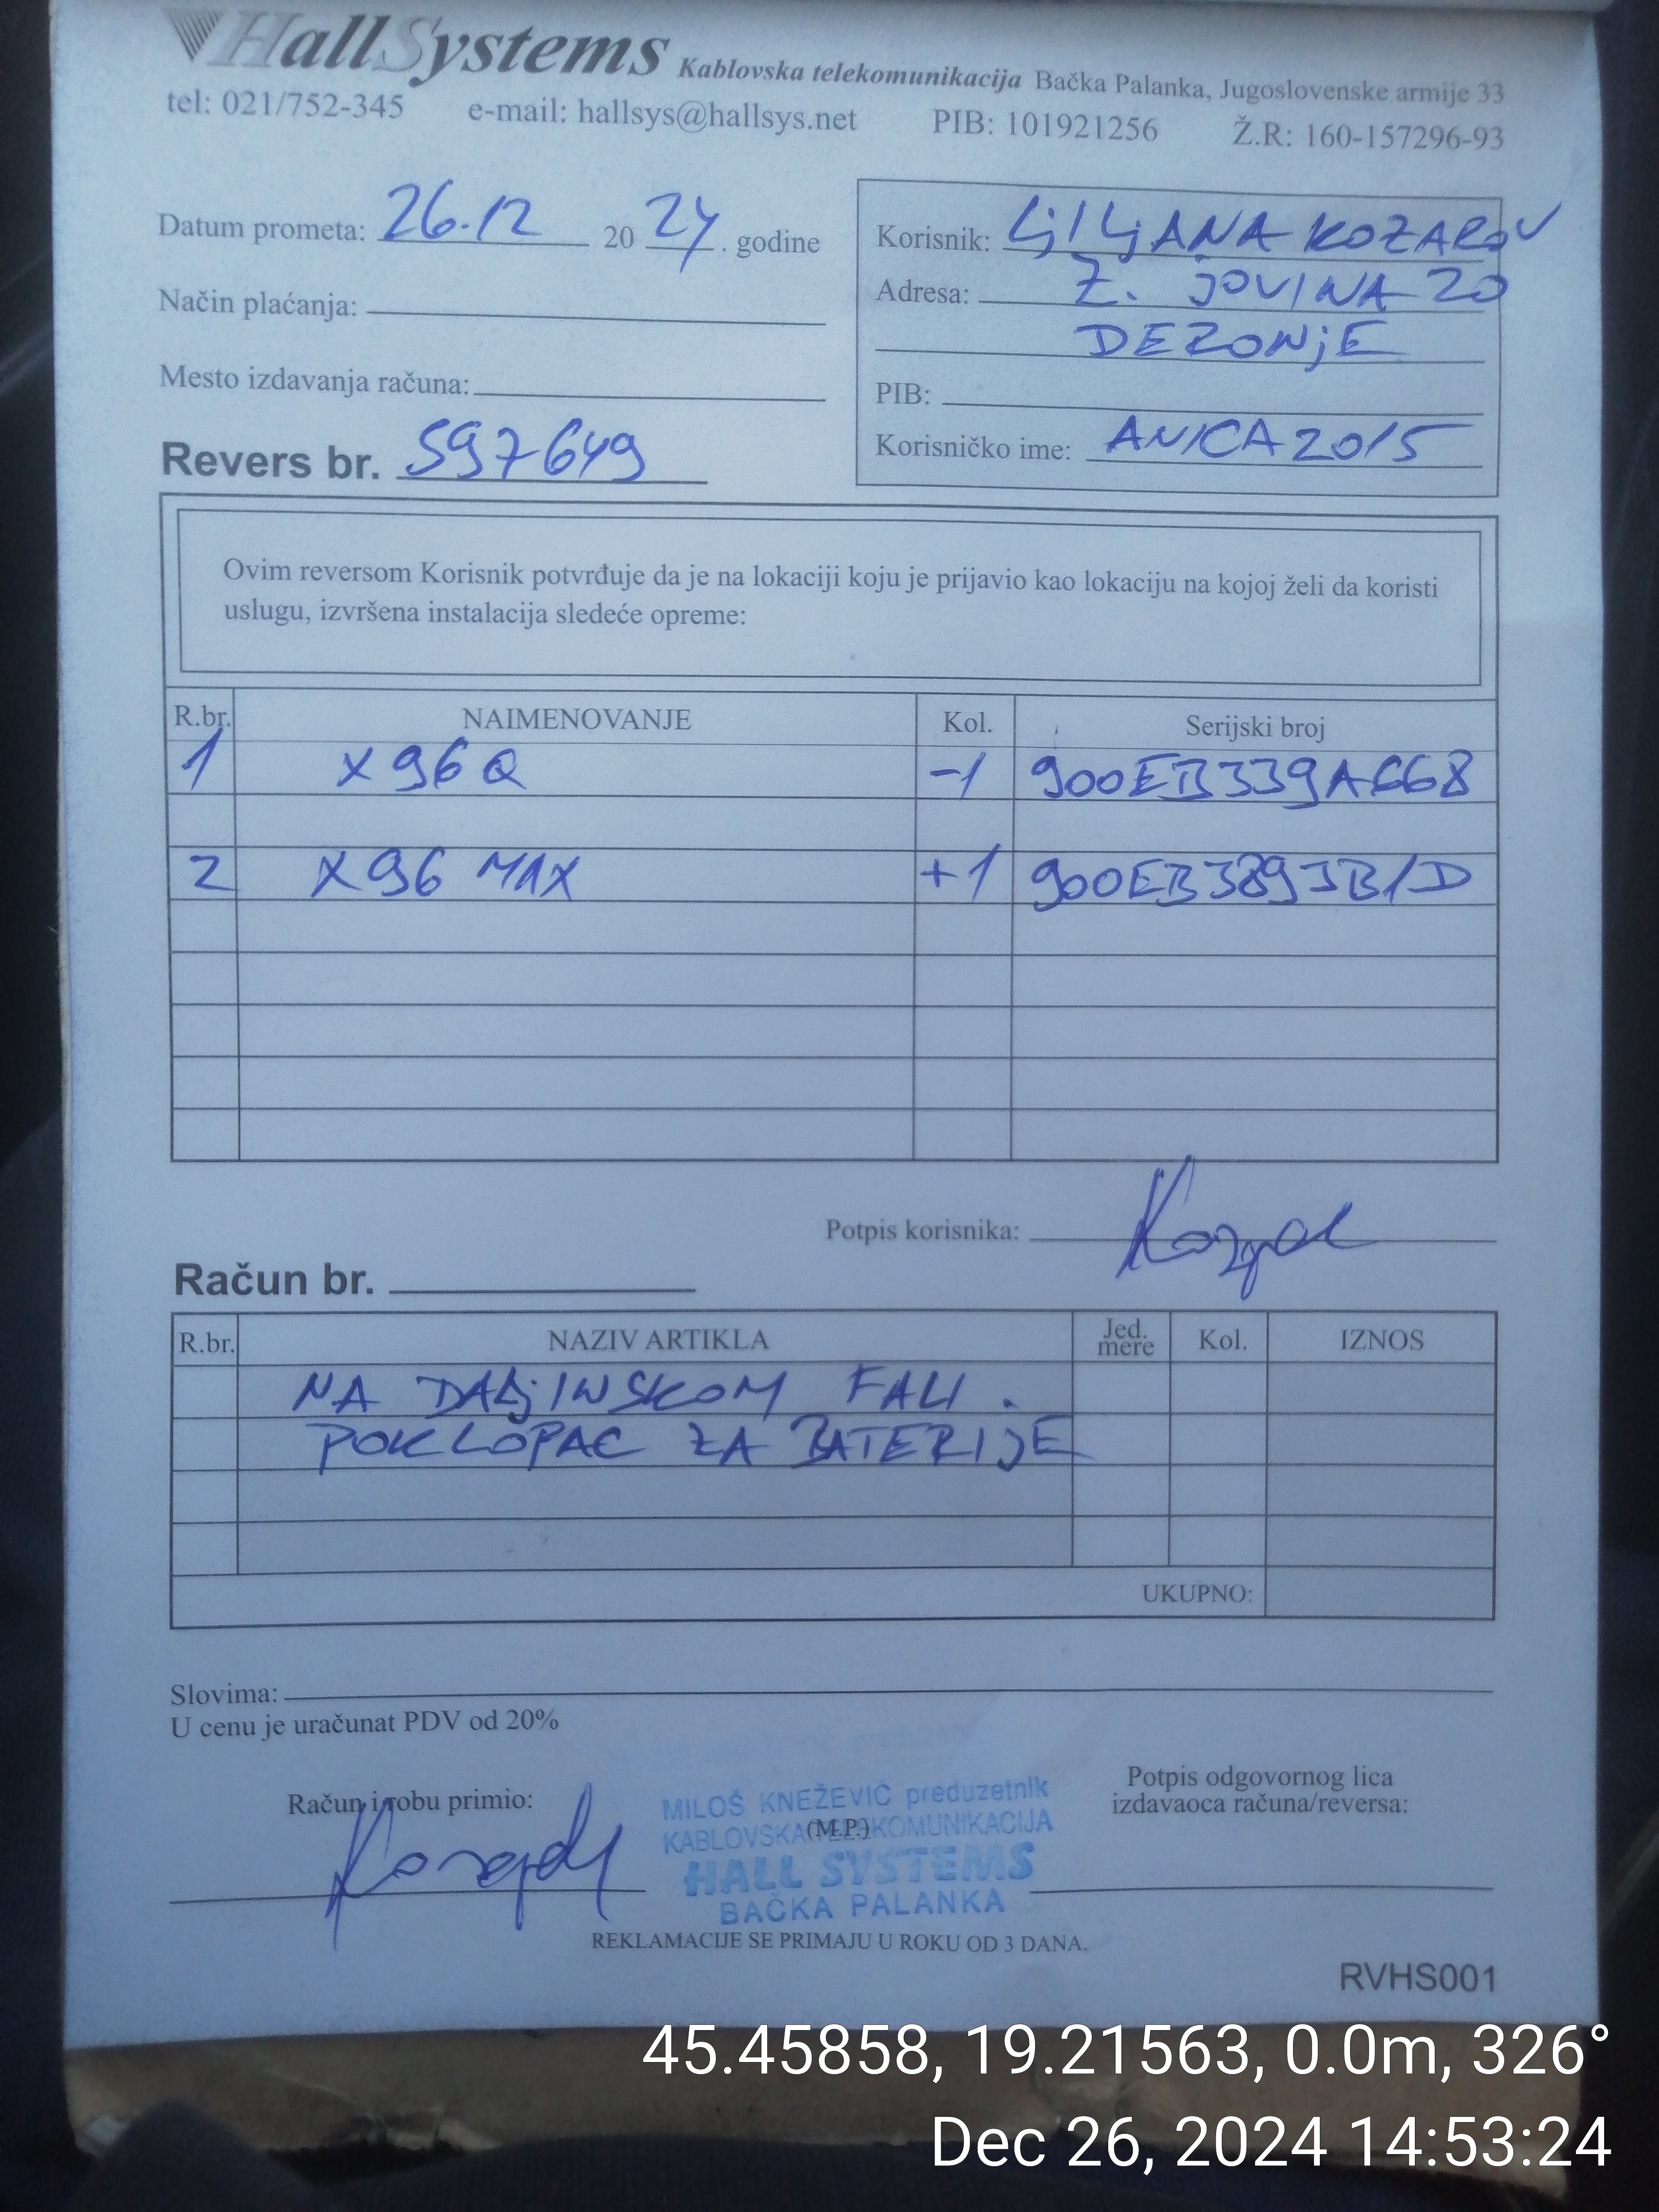 HallSystems Kablovska telekomunikacija Bačka Palanka, Jugoslovenske armije 33
tel: 021/752-345 e-mail: hallsys@hallsys.net PIB: 101921256 Ž.R: 160-157296-93
Datum prometa: 26.12 2024. godine
Korisnik: LjILjANA KOZAROV
Adresa: Ž. JOVINA 20
Način plaćanja:
DERONjE
Mesto izdavanja računa:
PIB:
Revers br. 597649
Korisničko ime: ANICA2015
Ovim reversom Korisnik potvrđuje da je na lokaciji koju je prijavio kao lokaciju na kojoj želi da koristi
uslugu, izvršena instalacija sledeće opreme:
R.br. NAIMENOVANJE Kol. Serijski broj
1 X96Q -1 900EB339A668
2 X96 MAX +1 900EB3893B1D
Potpis korisnika:
Račun br.
R.br. NAZIV ARTIKLA Jed. mere Kol. IZNOS
NA DALjINSKOM FALI.
POKLOPAC ZA BATERIJE
UKUPNO:
Slovima:
U cenu je uračunat PDV od 20%
Račun i robu primio:
MILOŠ KNEŽEVIĆ preduzetnik
KABLOVSKA TELEKOMUNIKACIJA
(M.P.)
HALL SYSTEMS
BAČKA PALANKA
Potpis odgovornog lica
izdavaoca računa/reversa:
REKLAMACIJE SE PRIMAJU U ROKU OD 3 DANA.
RVHS001
45.45858, 19.21563, 0.0m, 326°
Dec 26, 2024 14:53:24